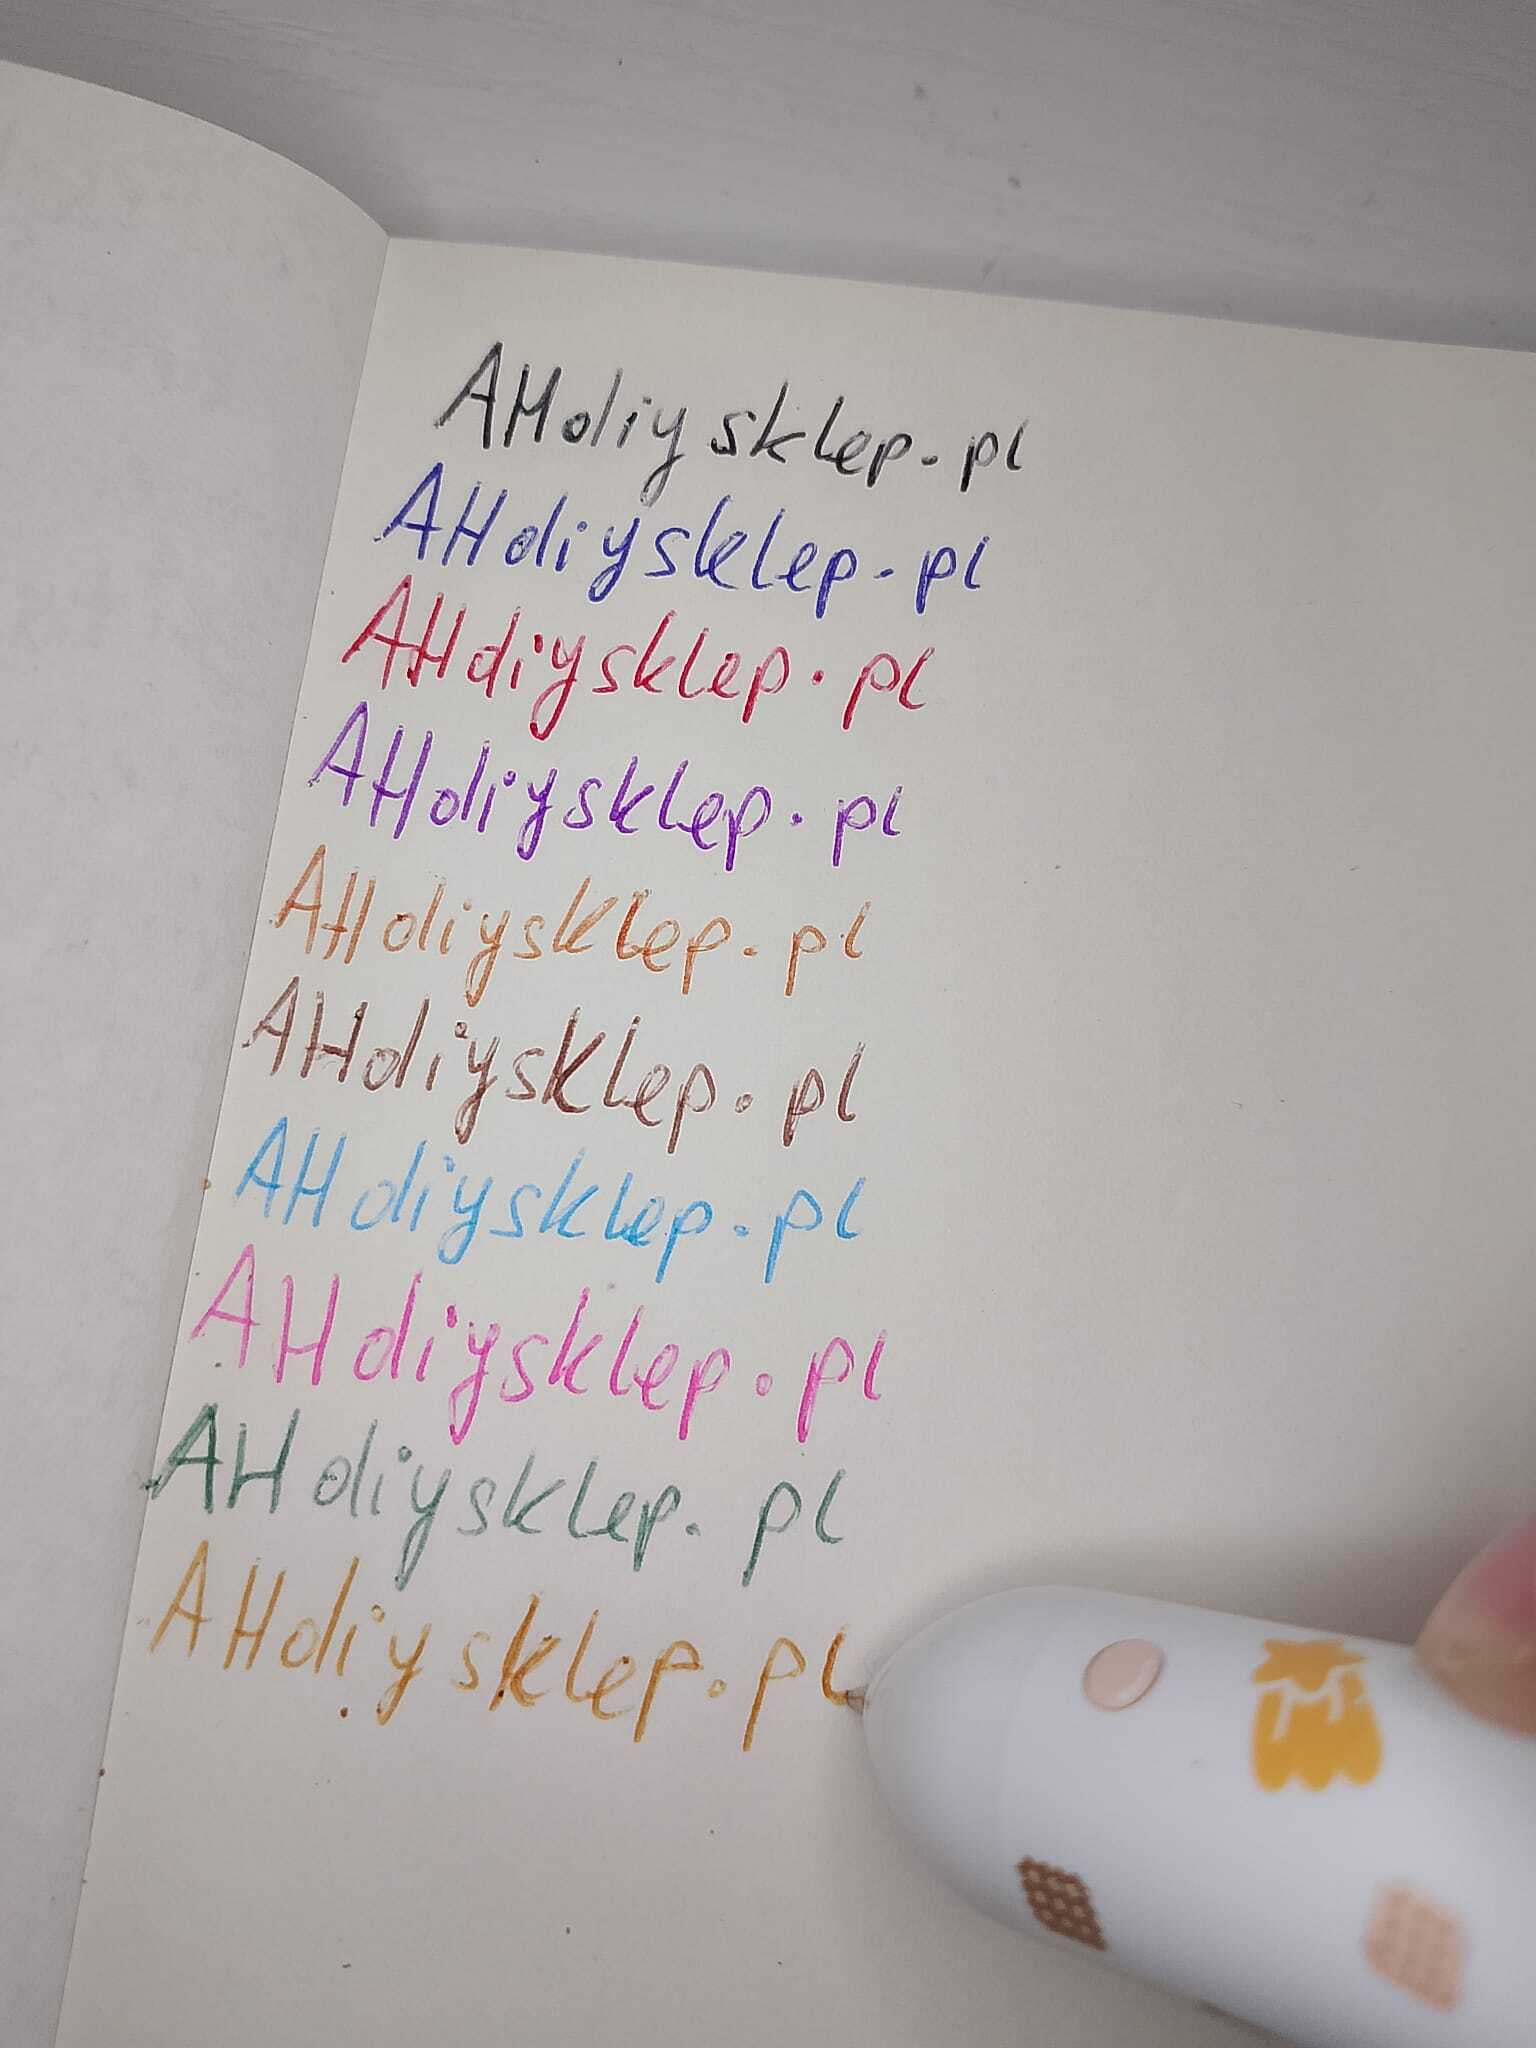 AHdiysklep.pl
AHdiysklep.pl
AHdiysklep.pl
AHdiysklep.pl
AHdiysklep.pl
AHdiysklep.pl
AHdiysklep.pl
AHdiysklep.pl
AHdiysklep.pl
AHdiysklep.pl